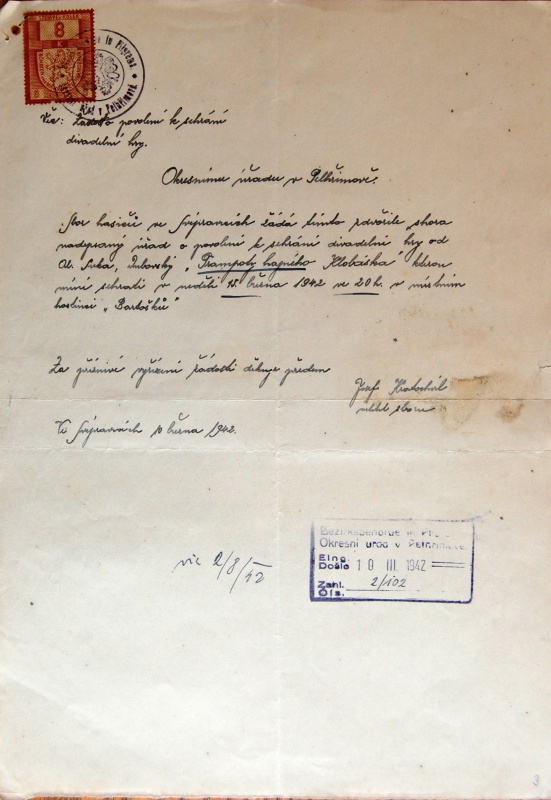 STEMPEL-KOLEK
8
K
Věc: Žádost o povolení k sehrání
divadelní hry.
Okresnímu úřadu v Pelhřimově.
Sbor hasičů ve Svépravicích žádá tímto zdvořile shora
nadepsaný úřad o povolení k sehrání divadelní hry od
Dubovský „Trampoty hajného Klobáska" kterou
míní sehrati v neděli 15. března 1942 ve 20 h. v místním
hostinci „Bartošků"
Za příznivé vyřízení žádosti děkuje předem
Josef Kratochvíl
velitel sboru
Ve Svépravicích 10 března 1942.
Bezirksbehörde in
Okresní úřad v Pelhřimově
Eing.
Došlo 10 III. 1942
Zahl. 2/102
Čís.
2/8/42
3